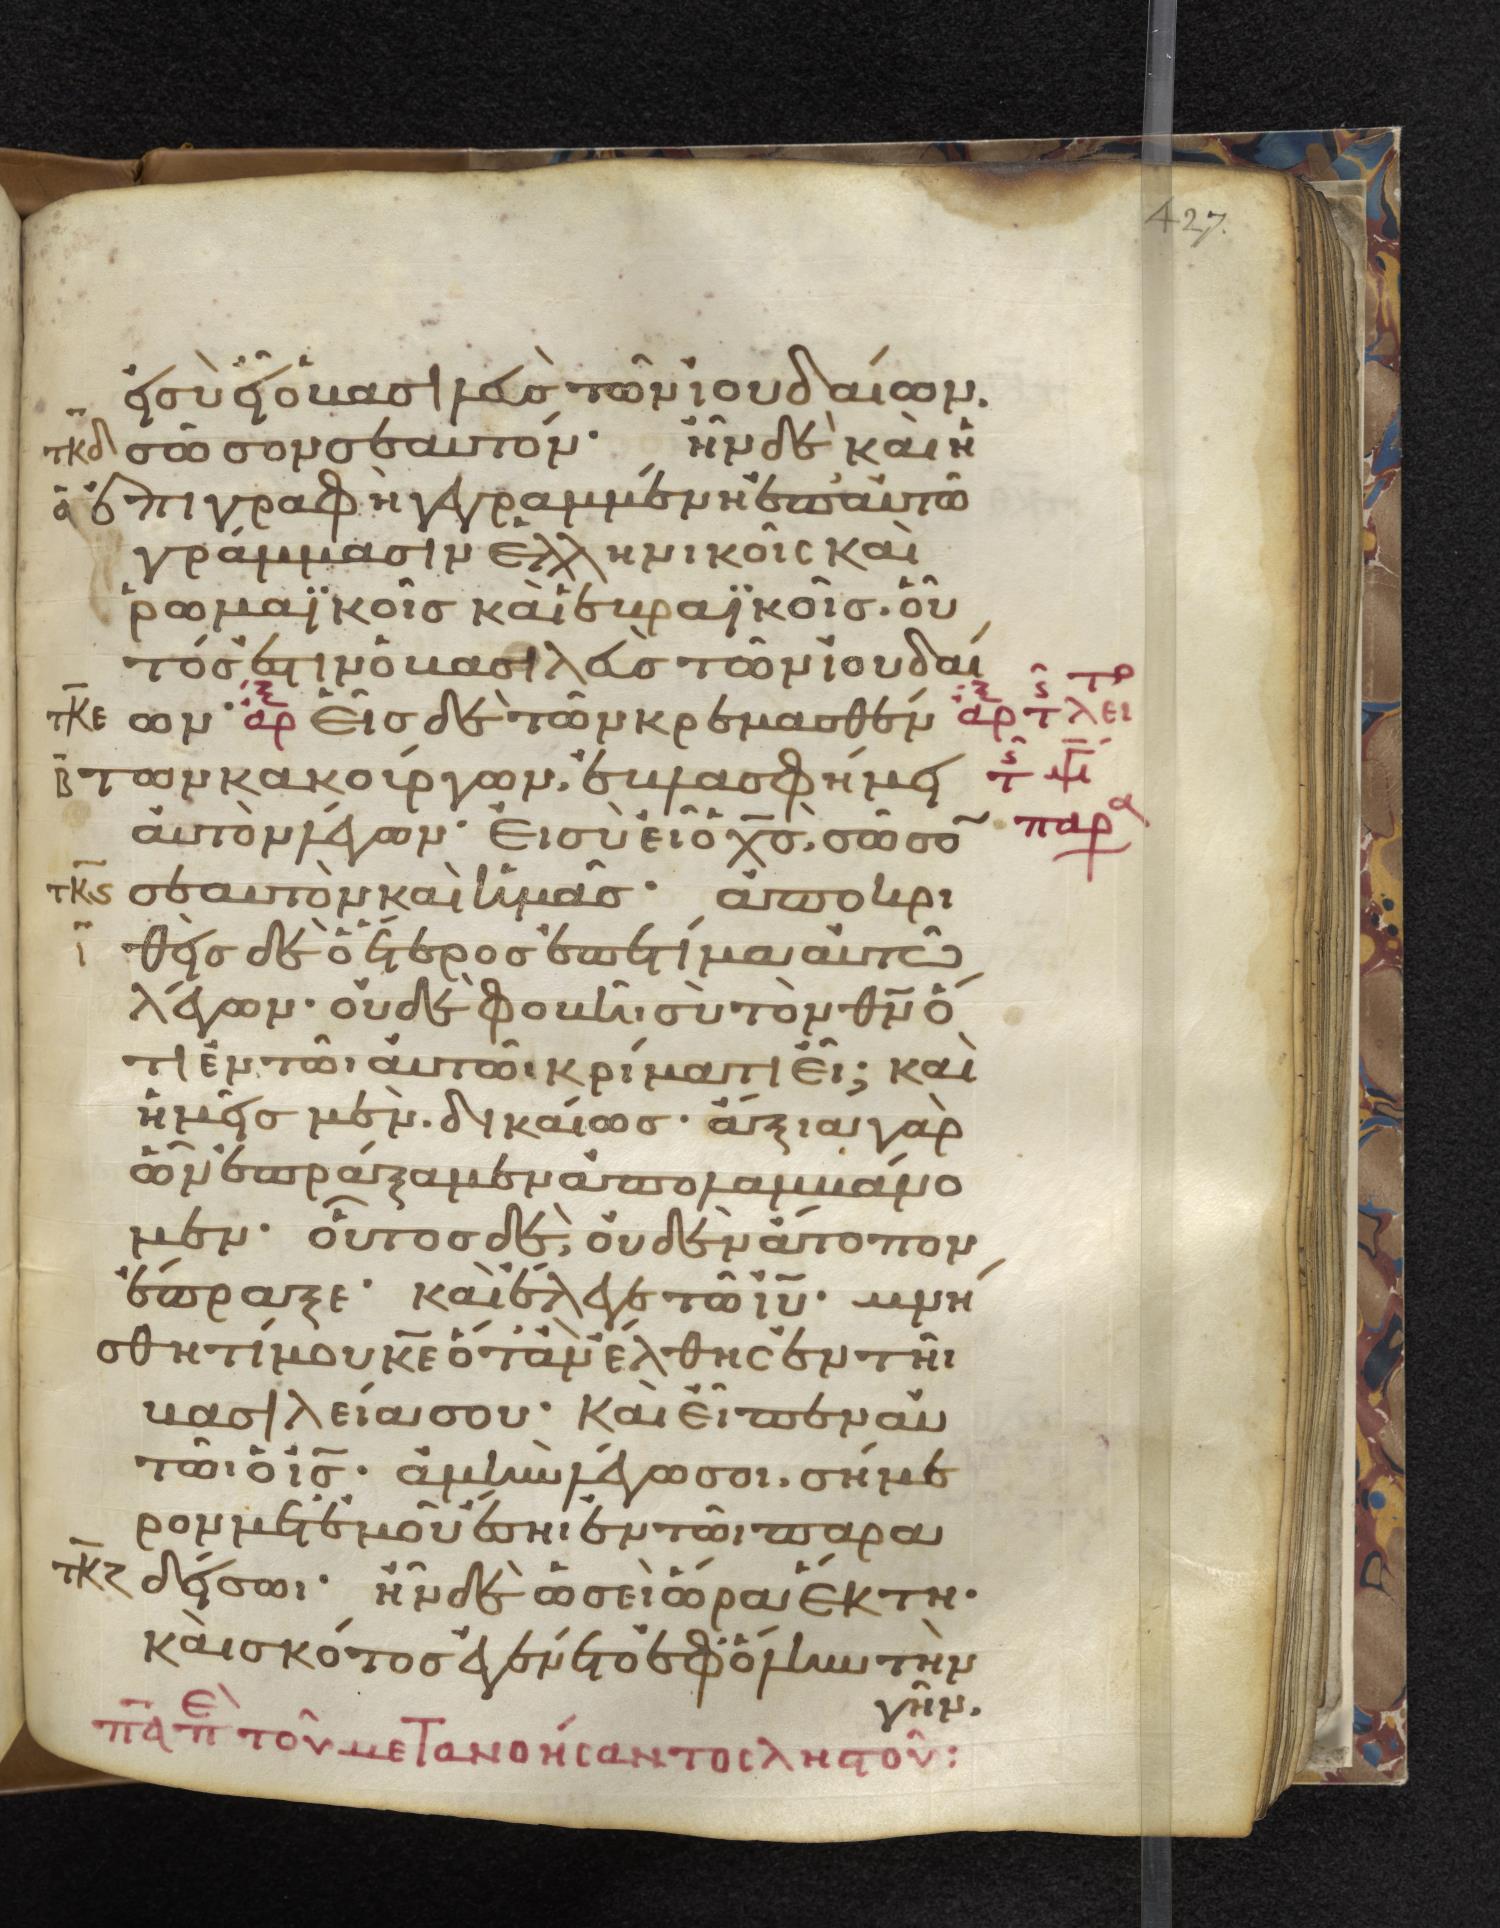 427.
εἰ σὺ εἶ ὁ βασιλεὺς τῶν ἰουδαίων.
τκδ σῶσον σεαυτόν· ἦν δὲ καὶ ἡ
α ἐπιγραφὴ γεγραμμένη ἐπ' αὐτῶ
γράμμασιν ἑλληνικοῖς καὶ
ῥωμαϊκοῖς καὶ ἑβραϊκοῖς. οὗ
τός ἐστιν ὁ βασιλεὺς τῶν ἰουδαί
τκε ων· ἀρ Εἷς δὲ τῶν κρεμασθέν ἀρ τ λει
β των κακούργων, ἐβλασφήμει
αὐτὸν λέγων· Εἰ σὺ εἶ ὁ χς, σῶσο
παρ
τκς σεαυτὸν καὶ ἡμᾶς· ἀποκρι
ι θεὶς δὲ ὁ ἕτερος ἐπετίμα αὐτῶ
λέγων· οὐδὲ φοβῆι σὺ τὸν θν ὅ
τι ἐν τῶι αὐτῶι κρίματι εἶ; καὶ
ἡμεῖς μὲν. δικαίως· ἄξια γὰρ
ὧν ἐπράξαμεν ἀπολαμβάνο
μεν· οὗτος δὲ, οὐδὲν ἄτοπον
ἔπραξε· καὶ ἔλεγε τῶ ιυ· μνή
σθητί μου κε ὅταν ἔλθης ἐν τῆι
βασιλείαι σου· Καὶ εἶπεν αὐ
τῶι ὁ ις· ἀμὴν λέγω σοι, σήμε
ρον μετ' ἐμοῦ ἔσηι ἐν τῶι παρα
τκζ δείσωι· ἦν δὲ ὡσεὶ ὥρα ἕκτη·
καὶ σκότος ἐγένετο ἐφ' ὅλην τὴν
γῆν.
τοῦ μετανοήσαντος ληστοῦ: